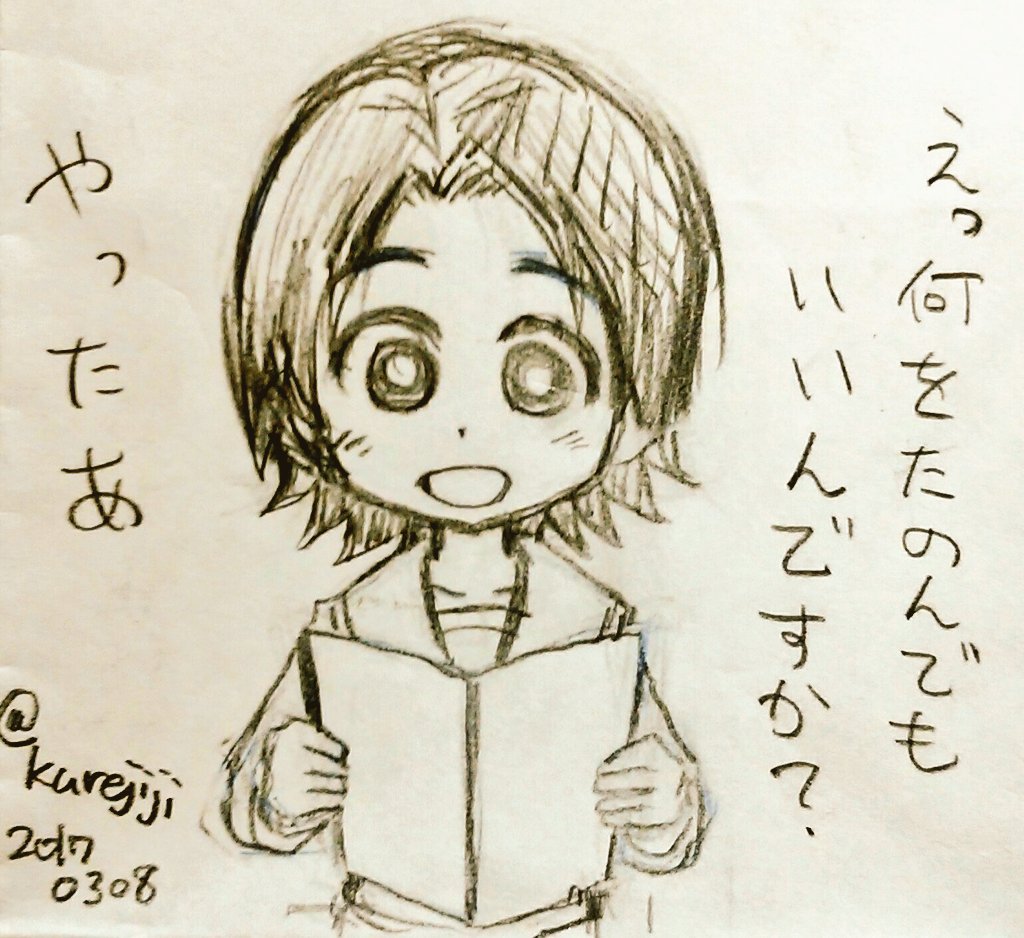 えっ何をたのんでも
いいんですか?
やったあ
@kurejiji
2017
0308